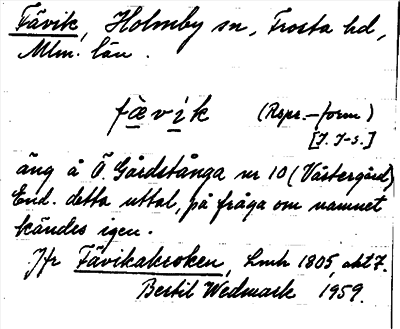 Fävik, Holmby sn, Frosta hd,
Mlm. län.
fä̱vi̱k (Rspr.-form)
[J. J-s.]
äng å Ö. Gårdstånga nr 10 (Västergård)
End. detta uttal, på fråga om namnet
kändes igen.
Jfr Fävikakroken, Lmh 1805, akt 7.
Bertil Wedmark 1959.